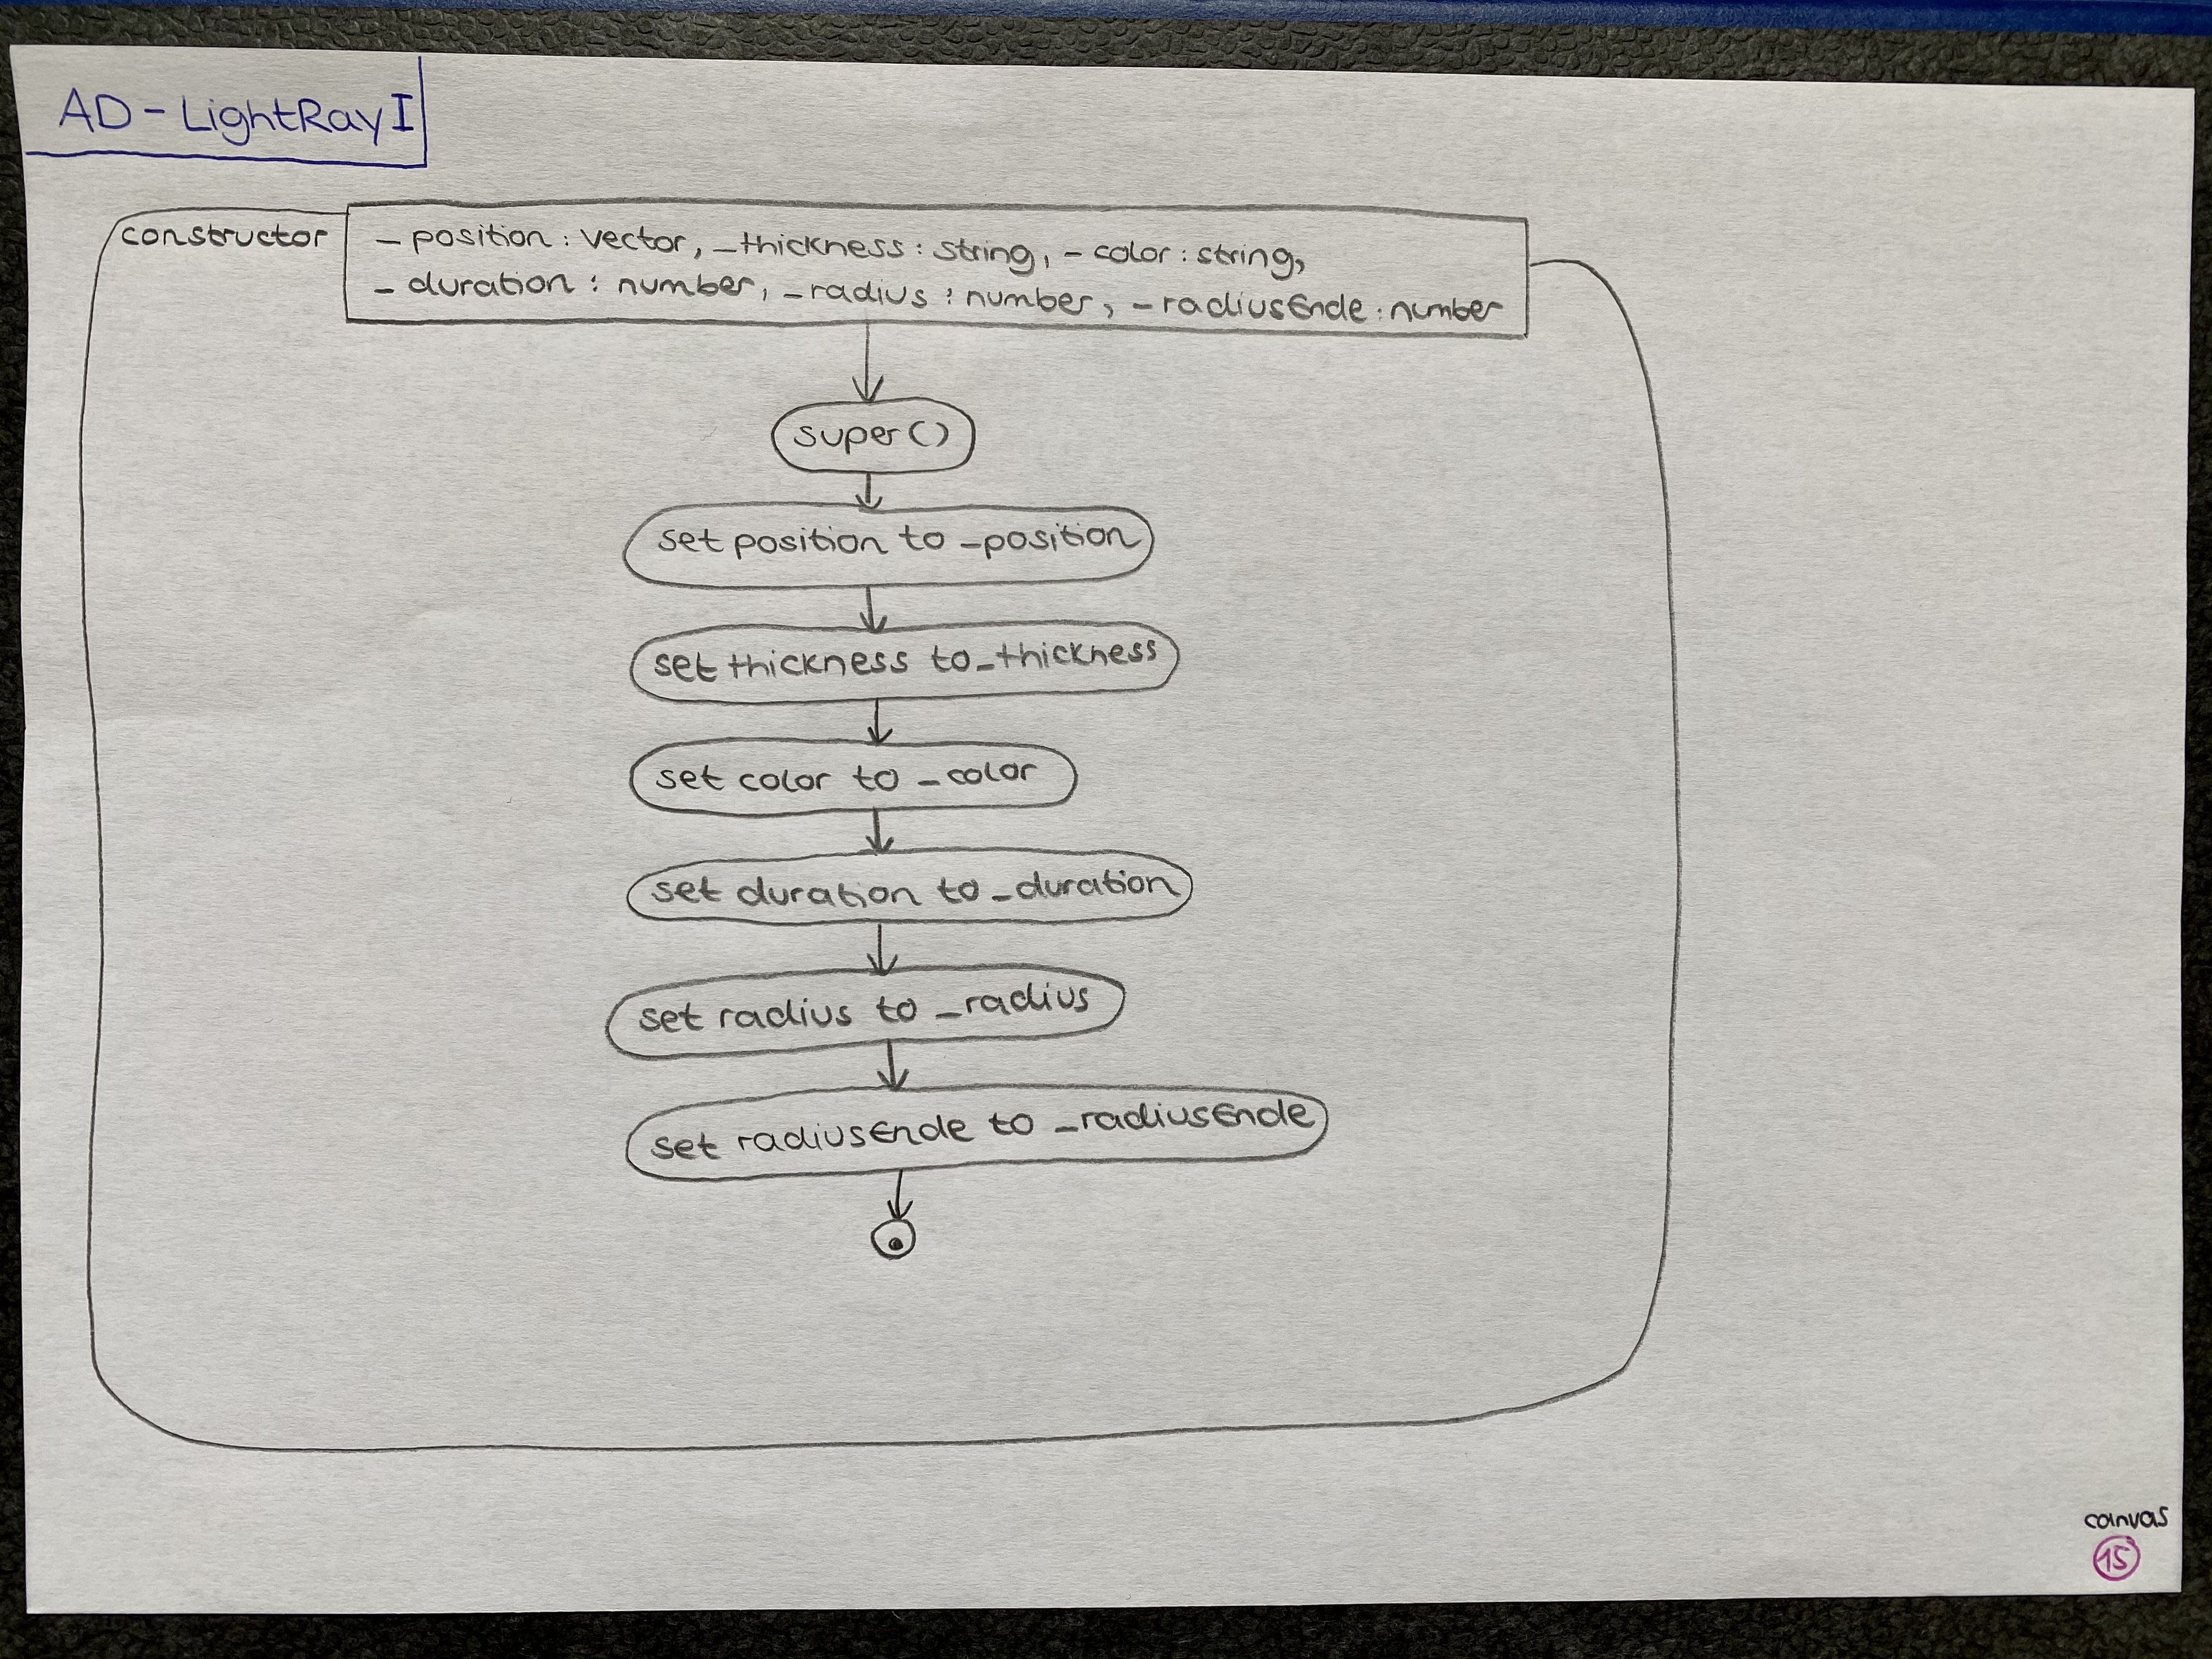 AD - LightRay I
constructor
_position : vector, _thickness : string, _color : string,
_duration : number, _radius : number, _radiusEnde : number
super()
set position to _position
set thickness to _thickness
set color to _color
set duration to _duration
set radius to _radius
set radiusEnde to _radiusEnde
canvas
15